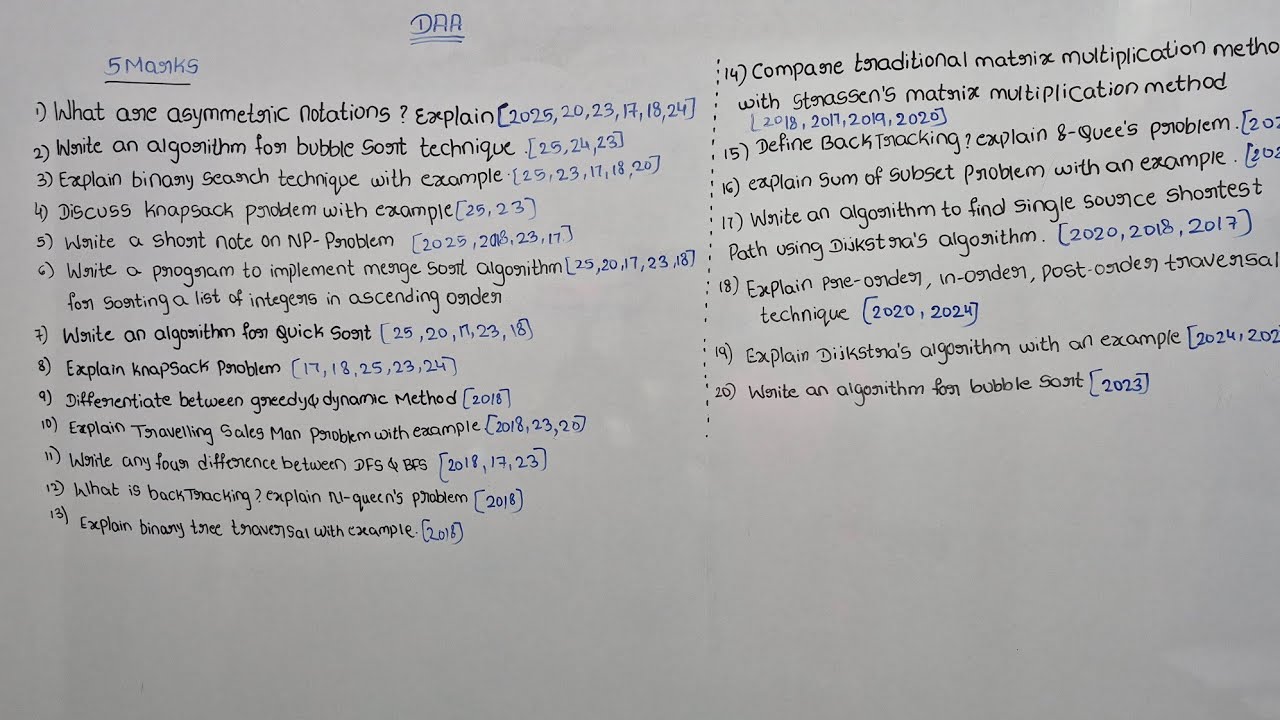 DAA
5 Marks
1) What are asymmetric notations? Explain [2025,20,23,17,18,24]
2) Write an algorithm for bubble sort technique.[25,24,23]
3) Explain binary search technique with example.[25,23,17,18,20]
4) Discuss knapsack problem with example [25,23]
5) Write a short note on NP-Problem [2025,2018,23,17]
6) Write a program to implement merge sort algorithm [25,20,17,23,18]
for sorting a list of integers in ascending order
7) Write an algorithm for Quick Sort [25,20,17,23,18]
8) Explain knapsack Problem [17,18,25,23,24]
9) Differentiate between greedy & dynamic Method [2018]
10) Explain Travelling Sales Man Problem with example [2018,23,20]
11) Write any four difference between DFS & BFS [2018,17,23]
12) What is backTracking? explain N-queen's problem [2018]
13) Explain binary tree traversal with example.[2018]
14) Compare traditional matrix multiplication metho
with Strassen's matrix multiplication method
[2018,2017,2019,2020]
15) Define BackTracking? explain 8-Quee's problem.[202
16) explain sum of subset Problem with an example.[202
17) Write an algorithm to find single source shortest
Path using Dijkstra's algorithm. [2020,2018,2017]
18) Explain Pre-order, in-order, post-order traversal
technique [2020,2024]
19) Explain Dijkstra's algorithm with an example [2024,202
20) Write an algorithm for bubble sort [2023]